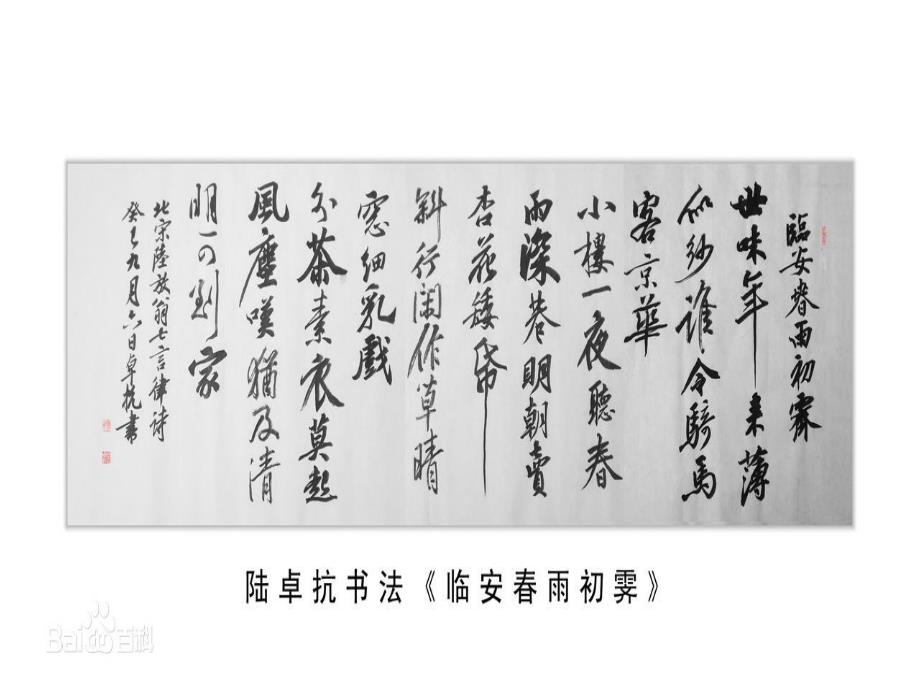 臨安春雨初霽
世味年来薄
似紗誰令騎馬
客京華
小樓一夜聽春
雨深巷明朝賣
杏花矮帋
斜行閑作草晴
窓細乳戲
分茶素衣莫起
風塵嘆猶及清
明可到家
北宋陸放翁七言律詩
癸巳九月六日卓抗書
陆卓抗书法《临安春雨初霁》
Bai百科